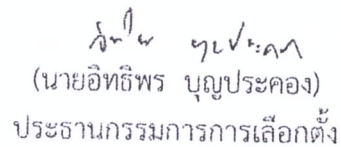 (นายอิทธิพร บุญประคอง)
ประธานกรรมการการเลือกตั้ง